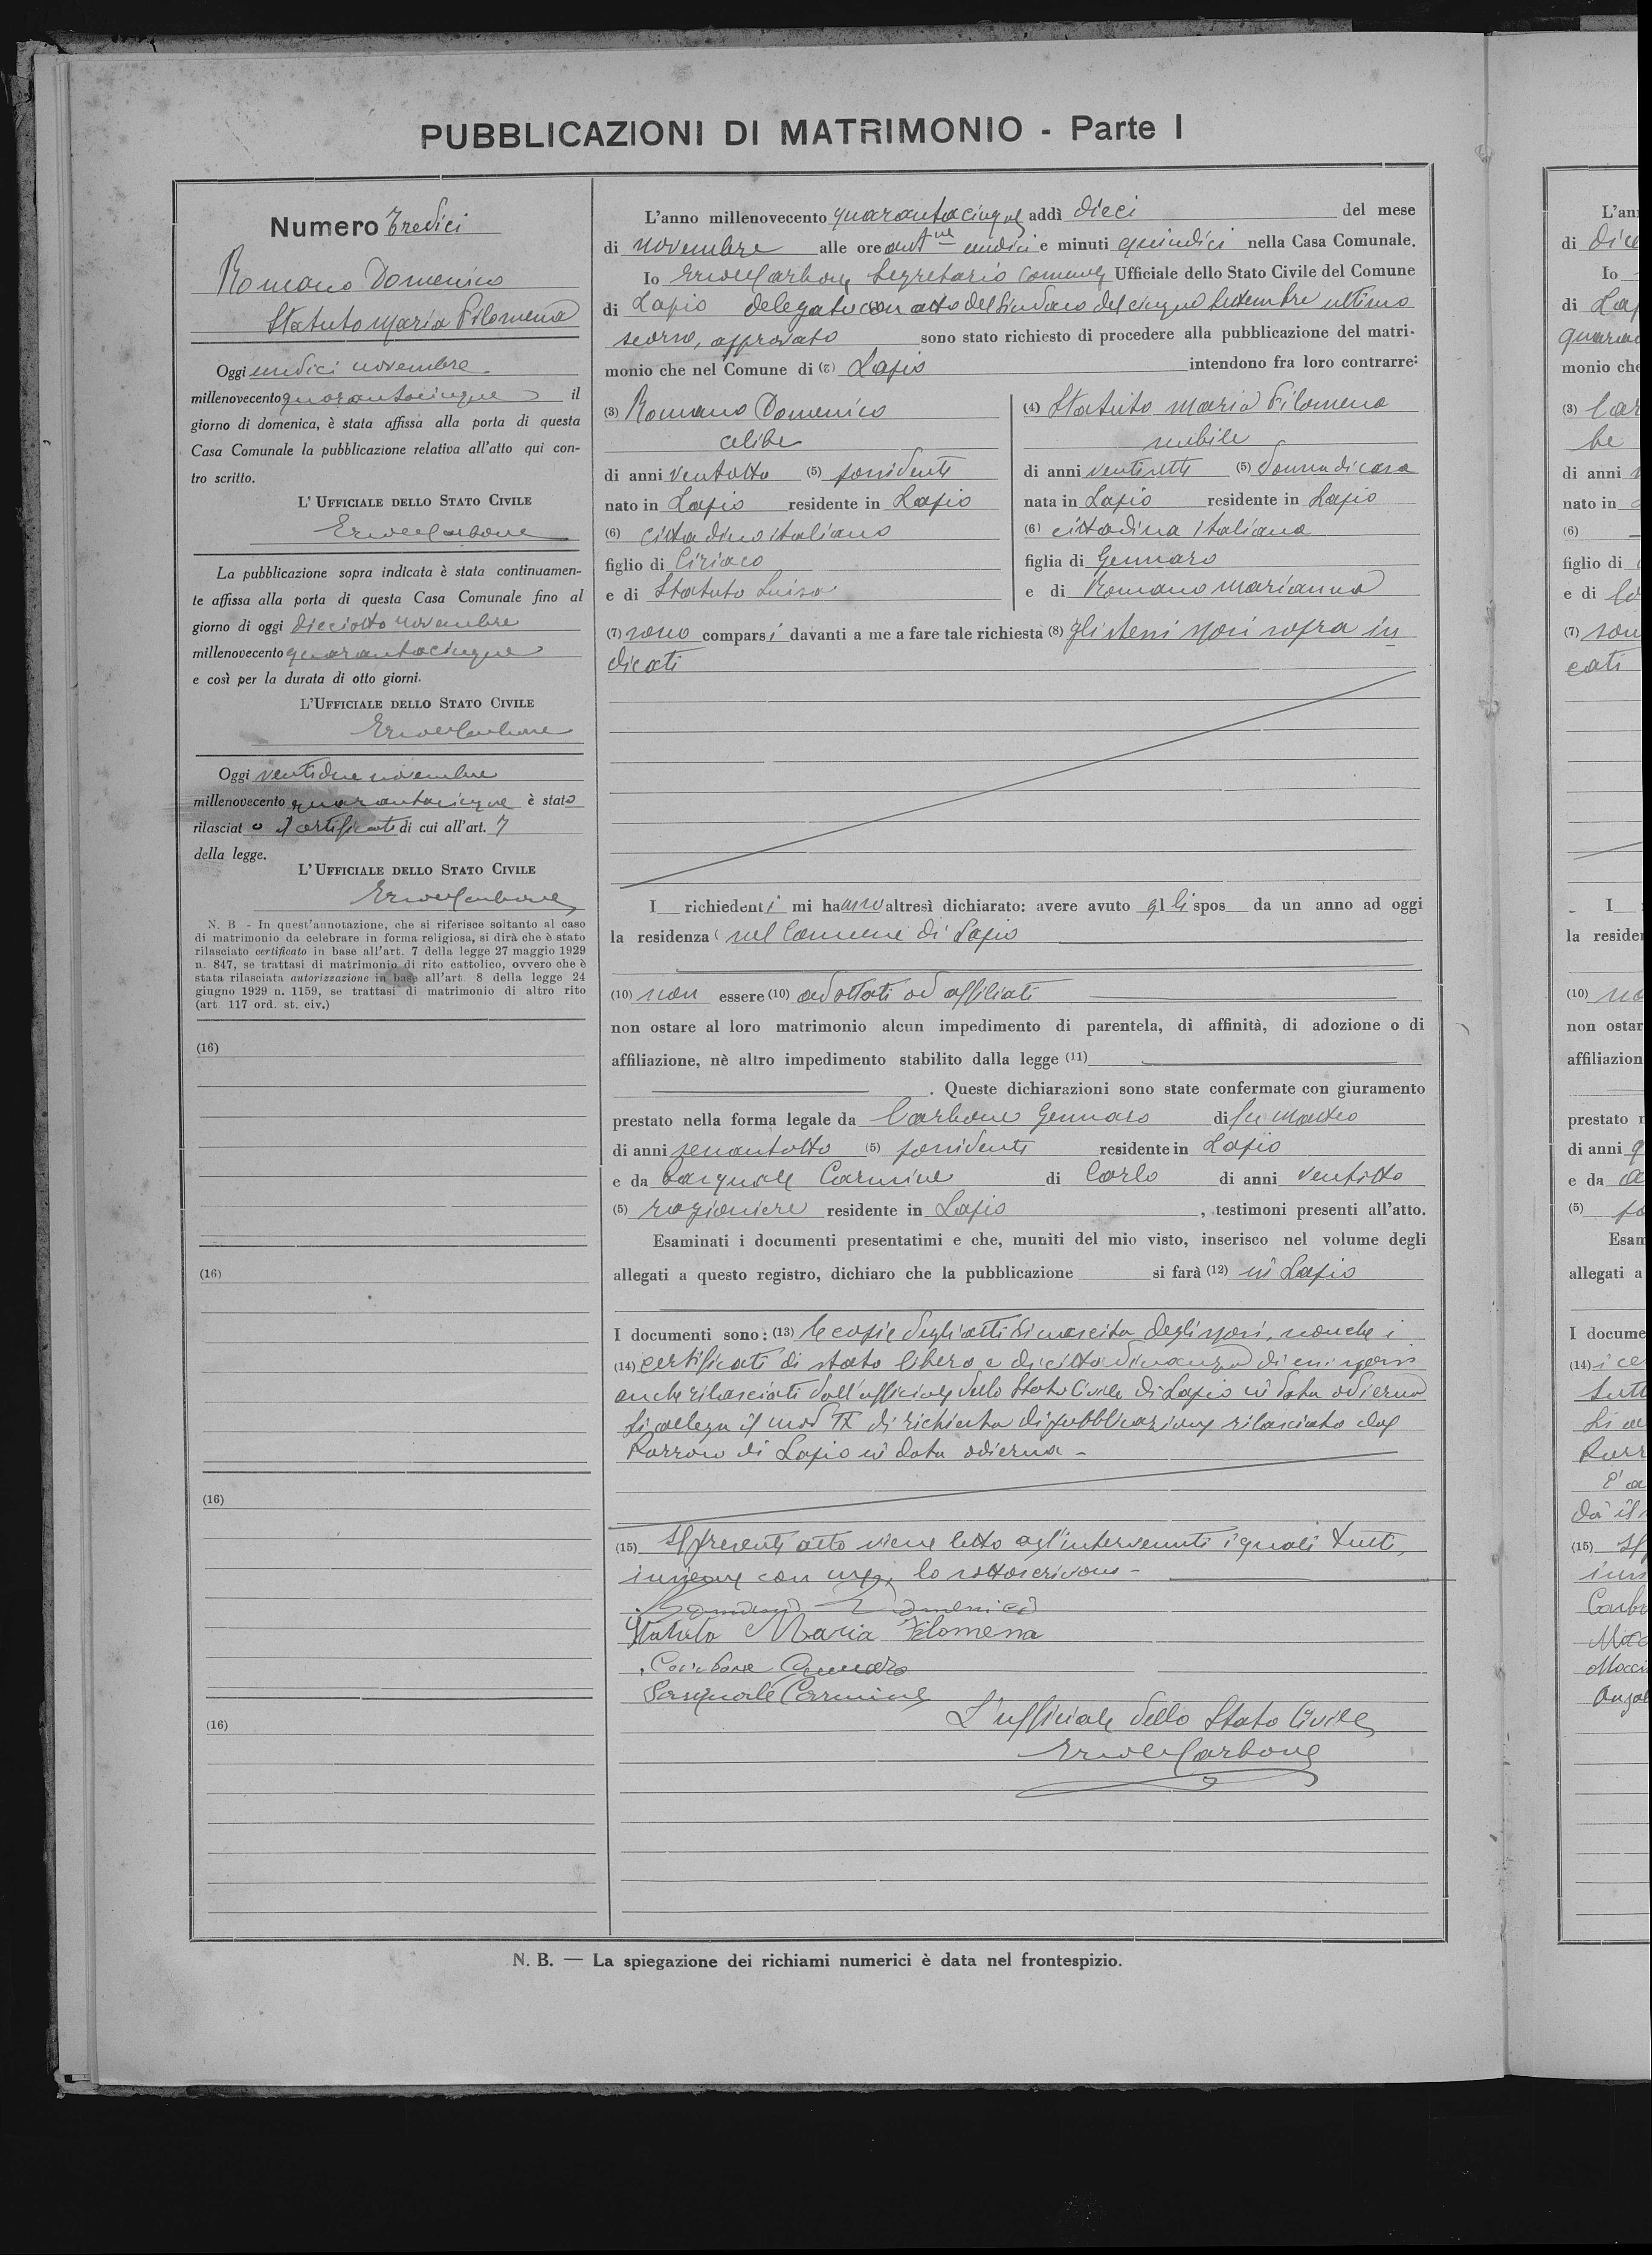 PUBBLICAZIONI DI MATRIMONIO - Parte I
Numero Tredici
Romano Domenico
Statuto Maria Filomena
Oggi undici novembre
millenovecento quarantacinque il
giorno di domenica, è stata affissa alla porta di questa
Casa Comunale la pubblicazione relativa all'atto qui con-
tro scritto.
L'UFFICIALE DELLO STATO CIVILE
Carbone
La pubblicazione sopra indicata è stata continuamen-
te affissa alla porta di questa Casa Comunale fino al
giorno di oggi dieciotto novembre
millenovecento quarantacinque
e così per la durata di otto giorni.
L'UFFICIALE DELLO STATO CIVILE
Carbone
Oggi ventidue novembre
millenovecento quarantacinque è stato
rilasciat o il certificato di cui all'art. 7
della legge.
L'UFFICIALE DELLO STATO CIVILE
Carbone
N. B - In quest'annotazione, che si riferisce soltanto al caso
di matrimonio da celebrare in forma religiosa, si dirà che è stato
rilasciato certificato in base all'art. 7 della legge 27 maggio 1929
n. 847, se trattasi di matrimonio di rito cattolico, ovvero che è
stata rilasciata autorizzazione in base all'art. 8 della legge 24
giugno 1929 n. 1159, se trattasi di matrimonio di altro rito
(art. 117 ord. st. civ.)
(16)
(16)
(16)
(16)
L'anno millenovecento quarantacinque addì dieci del mese
di novembre alle ore antne undici e minuti quindici nella Casa Comunale.
Io Carbone Segretario Comunale Ufficiale dello Stato Civile del Comune
di Lapio delegato con atto del Sindaco del cinque Settembre ultimo
scorso, approvato sono stato richiesto di procedere alla pubblicazione del matri-
monio che nel Comune di (2) Lapio intendono fra loro contrarre:
(3) Romano Domenico
celibe
di anni ventotto (5) possidente
nato in Lapio residente in Lapio
(6) cittadino italiano
figlio di Ciriaco
e di Statuto Luisa
(4) Statuto Maria Filomena
nubile
di anni ventisette (5) donna di casa
nata in Lapio residente in Lapio
(6) cittadina italiana
figlia di Gennaro
e di Romano Marianna
(7) sono comparsi davanti a me a fare tale richiesta (8) gli stessi sposi sopra in
dicati
I richiedenti mi hanno altresì dichiarato: avere avuto gl li spos da un anno ad oggi
la residenza nel Comune di Lapio
(10) non essere (10) adottati od affiliati
non ostare al loro matrimonio alcun impedimento di parentela, di affinità, di adozione o di
affiliazione, nè altro impedimento stabilito dalla legge (11)
. Queste dichiarazioni sono state confermate con giuramento
prestato nella forma legale da Carbone Gennaro di fu Matteo
di anni sessantotto (5) possidente residente in Lapio
e da Pasquale Carmine di Carlo di anni ventotto
(5) ragioniere residente in Lapio , testimoni presenti all'atto.
Esaminati i documenti presentatimi e che, muniti del mio visto, inserisco nel volume degli
allegati a questo registro, dichiaro che la pubblicazione si farà (12) in Lapio
I documenti sono: (13) le copie degli atti di nascita degli sposi, nonche i
(14) certificati di stato libero e di cittadinanza di essi sposi
anche rilasciati dall'ufficiale dello Stato Civile di Lapio in data odierna
Si allega il mod IX di richiesta di pubblicazione rilasciato dal
Parroco di Lapio in data odierna -
(15) Il presente atto viene letto agl'intervenuti i quali tutti,
insieme con me, lo sottoscrivono -
Romano Domenico
Statuto Maria Filomena
Carbone Gennaro
Pasquale Carmine
L'ufficiale dello Stato Civile
Carbone
N. B. — La spiegazione dei richiami numerici è data nel frontespizio.
L'an
di dice
Io
di Lap
monio che
(3) Car
be
di anni
nato in
(6)
figlio di
e di
(7) son
cati
I
la reside
(10) no
non ostar
affiliazion
prestato
di anni
e da
(5)
Esam
allegati a
I docume
(14) i ce
Si al
Parr
(15) Il